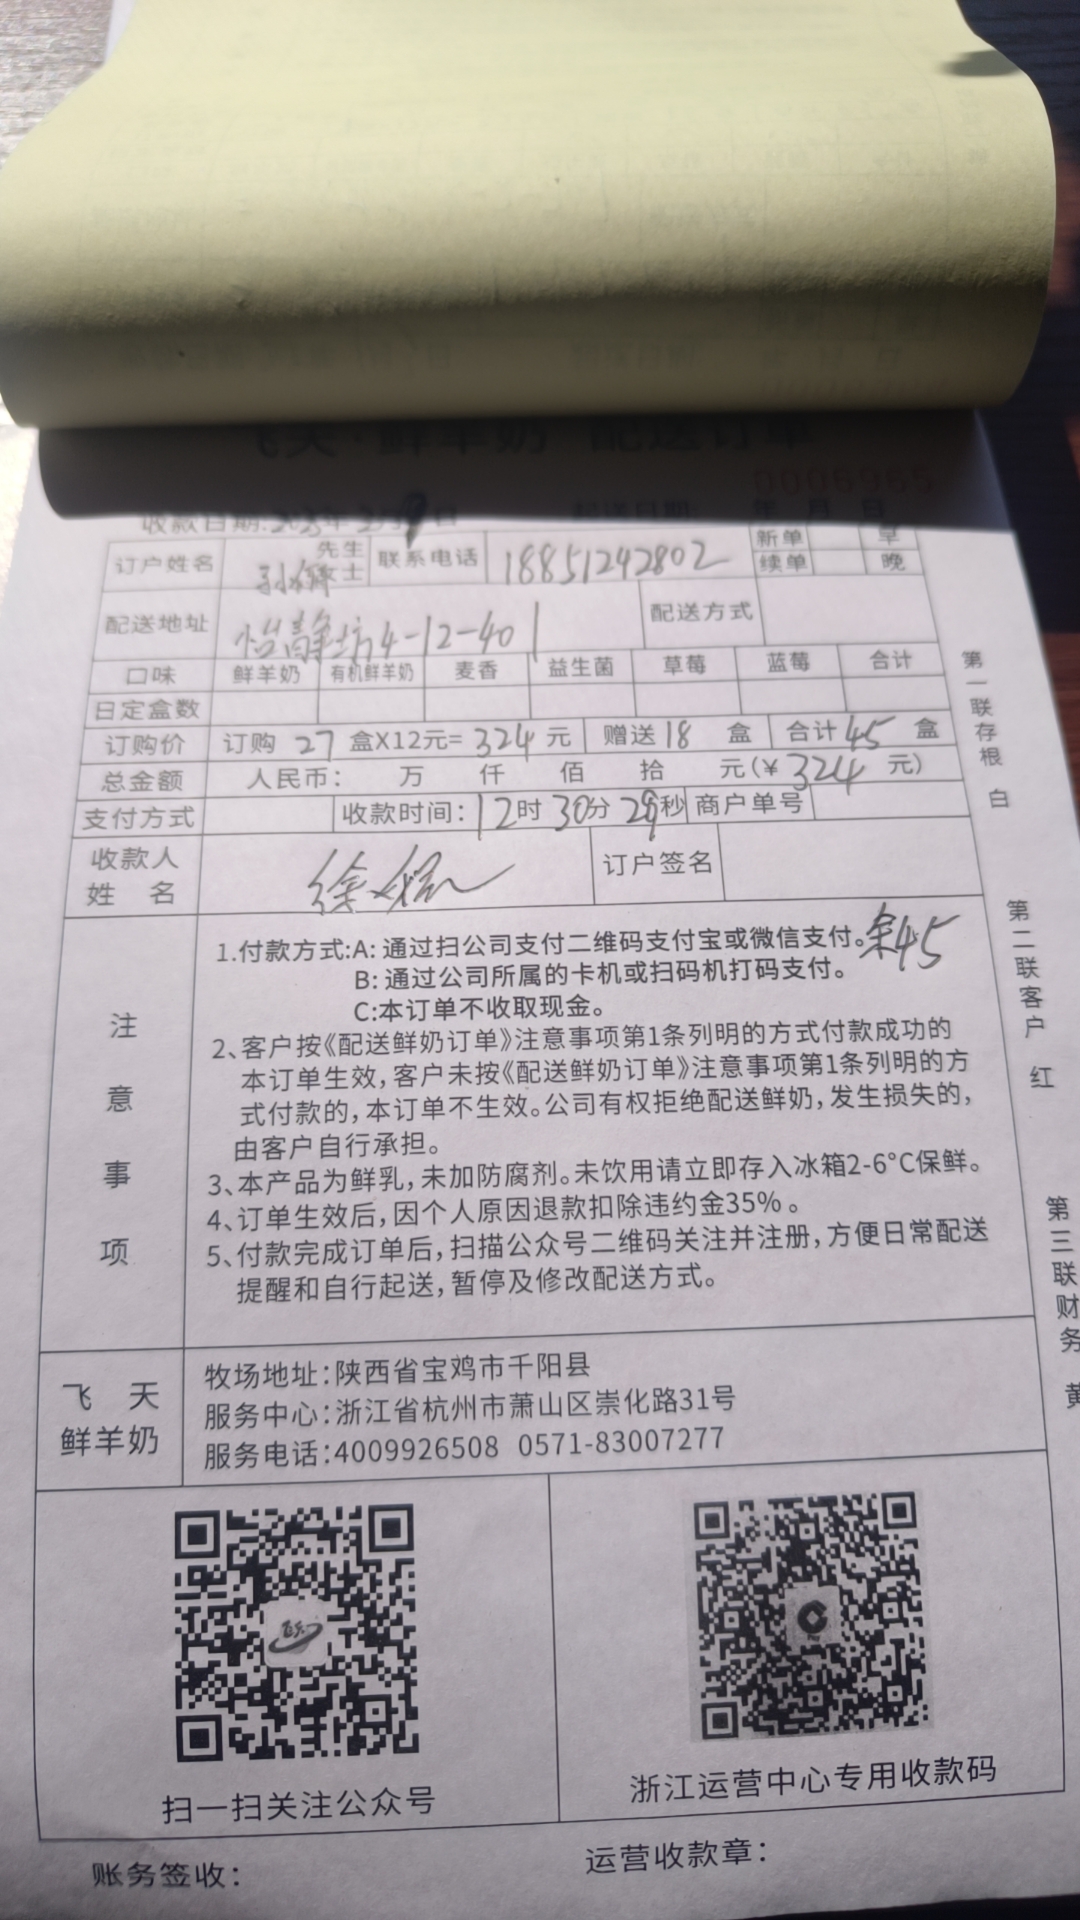 飞天·鲜羊奶 配送订单
0006965
收款日期:2023年3月9日 起送日期: 年 月 日
订户姓名 先生 士 联系电话 18851242802 新单 早
续单 晚
配送地址 怡静坊4-12-401 配送方式
口味 鲜羊奶 有机鲜羊奶 麦香 益生菌 草莓 蓝莓 合计
日定盒数
订购价 订购 27 盒X12元= 324 元 赠送 18 盒 合计 45 盒
总金额 人民币: 万 仟 佰 拾 元(¥ 324 元)
支付方式 收款时间: 12时 30分 29秒 商户单号
收款人
姓 名 订户签名
注意事项
1.付款方式:A: 通过扫公司支付二维码支付宝或微信支付。余45
B: 通过公司所属的卡机或扫码机打码支付。
C:本订单不收取现金。
2、客户按《配送鲜奶订单》注意事项第1条列明的方式付款成功的
本订单生效,客户未按《配送鲜奶订单》注意事项第1条列明的方
式付款的,本订单不生效。公司有权拒绝配送鲜奶,发生损失的,
由客户自行承担。
3、本产品为鲜乳,未加防腐剂。未饮用请立即存入冰箱2-6°C保鲜。
4、订单生效后,因个人原因退款扣除违约金35%。
5、付款完成订单后,扫描公众号二维码关注并注册,方便日常配送
提醒和自行起送,暂停及修改配送方式。
飞 天
鲜羊奶
牧场地址:陕西省宝鸡市千阳县
服务中心:浙江省杭州市萧山区崇化路31号
服务电话:4009926508 0571-83007277
扫一扫关注公众号
浙江运营中心专用收款码
账务签收:
运营收款章:
第一联存根 白
第二联客户 红
第三联财务 黄